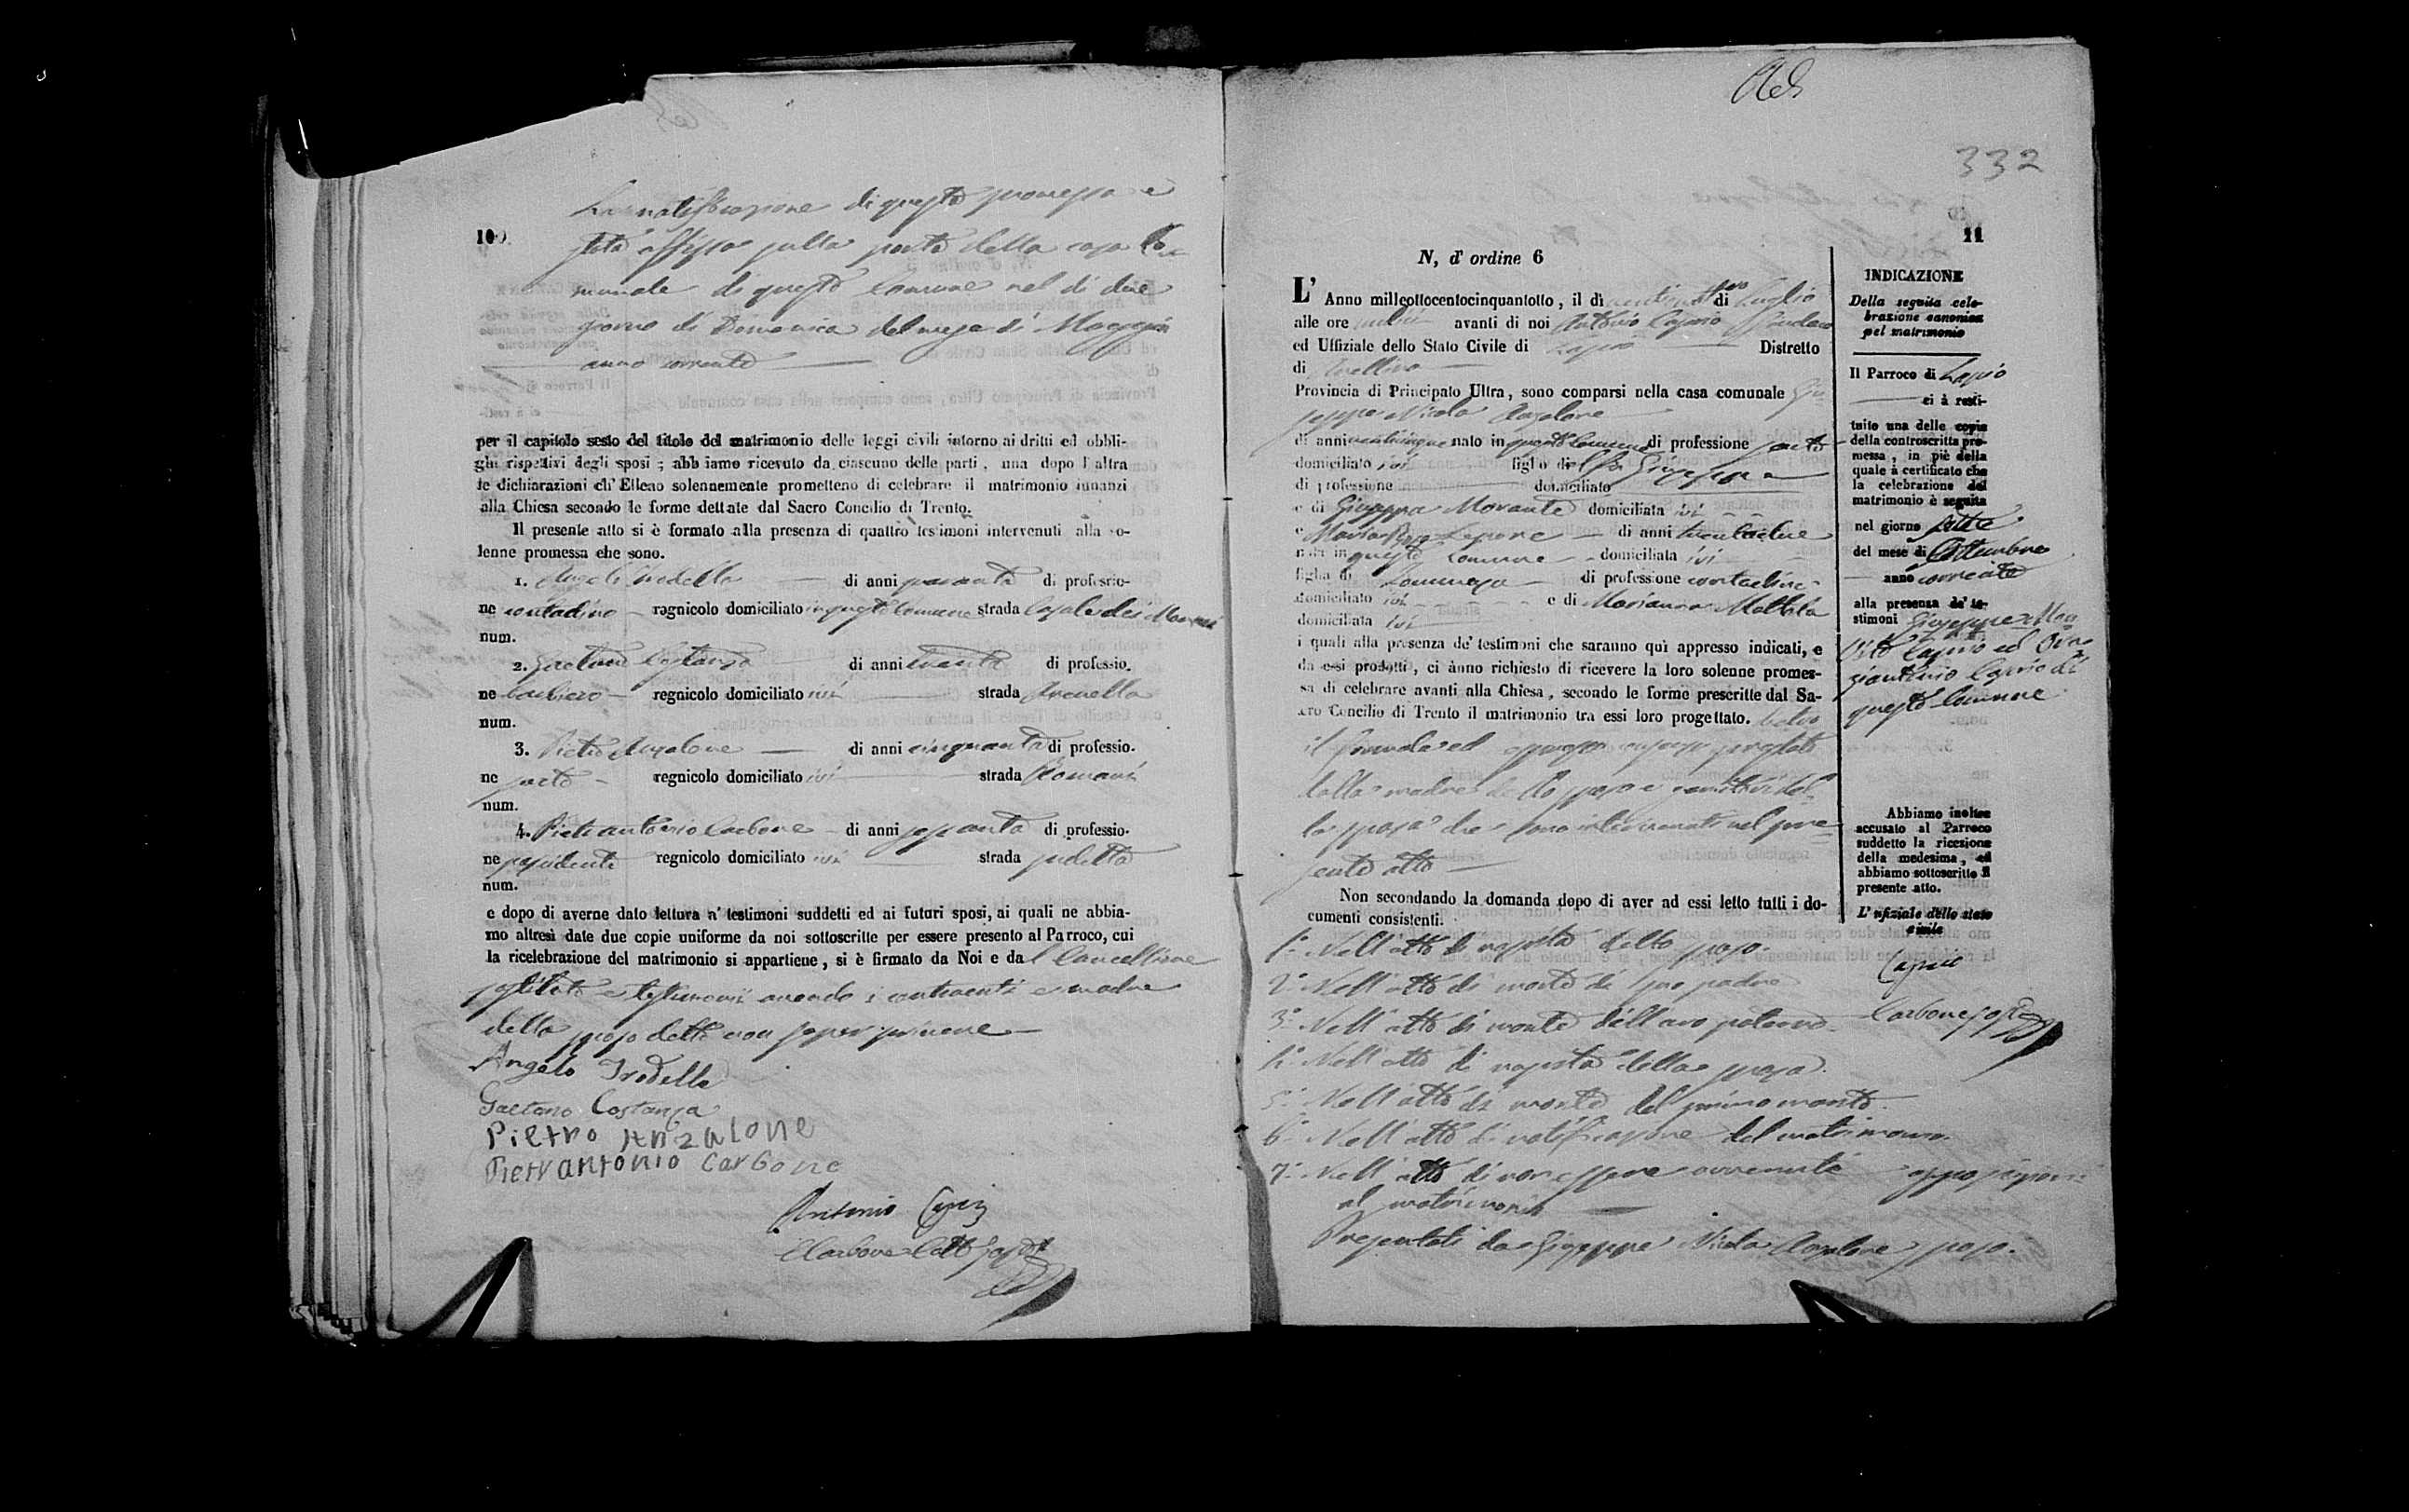 100
La notificazione di questa promessa è
stata affissa sulla porta della casa Co-
munale di questo Comune nel dì due
giorno di Domenica del mese di Maggio
anno corrente
per il capitolo sesto del titolo del matrimonio delle leggi civili intorno ai dritti ed obbli-
ghi rispettivi degli sposi ; abb iamo ricevuto da ciascuno delle parti , una dopo l' altra
le dichiarazioni ch' Elleno solennemente prometteno di celebrare il matrimonio innanzi
alla Chiesa secondo le forme dettate dal Sacro Concilio di Trento.
Il presente atto si è formato alla presenza di quattro testimoni intervenuti alla so-
lenne promessa che sono.
1. Angelo Trodella di anni quaranta di professio-
ne contadino regnicolo domiciliato in questo Comune strada Casale dei
num.
2. Gaetano Costanza di anni trenta di professio.
ne barbiere regnicolo domiciliato ivi strada
num.
3. Pietro Anzalone di anni cinquanta di professio.
ne sarto regnicolo domiciliato ivi strada Romani
num.
4. Pietrantonio Carbone di anni sessanta di professio-
ne possidente regnicolo domiciliato ivi strada sudetta
num.
e dopo di averne dato lettura a' testimoni suddetti ed ai futuri sposi, ai quali ne abbia-
mo altresì date due copie uniforme da noi sottoscritte per essere presento al Parroco, cui
la ricelebrazione del matrimonio si appartiene , si è firmato da Noi e dal Cancelliere
sostituto e testimonii avendo i contraenti e madre
dello sposo detto non saper scrivere
Angelo Trodella
Gaetano Costanza
Pietro Anzalone
Pietrantonio Carbone
Antonio Caprio
Carbone Canc sosto
332
11
N, d' ordine 6
L' Anno millottocentocinquantotto , il dì di Luglio
alle ore avanti di noi Antonio Caprio Sindaco
ed Uffiziale dello Stato Civile di Lapio Distretto
di Avellino
Provincia di Principato Ultra, sono comparsi nella casa comunale Giu-
seppe Nicola Anzalone
di anni venticinque nato in questo Comune di professione sarto
domiciliato ivi figlio del fu Giuseppe
di professione domiciliato
e di Giuseppa Morante domiciliata ivi
e Maria Rosa Lepore di anni trentadue
nata in questo Comune domiciliata ivi
figlia di Tommaso di professione contadino
domiciliato ivi e di Marianna Mottola
domiciliata ivi
i quali alla presenza de' testimoni che saranno quì appresso indicati, e
da essi prodotti, ci ànno richiesto di ricevere la loro solenne promes-
sa di celebrare avanti alla Chiesa , secondo le forme prescritte dal Sa-
cro Concilio di Trento il matrimonio tra essi loro progettato.
il formale ed espresso consenso prestato
dalla madre dello sposo e genitori del-
la sposa che sono intervenuti nel pre-
sente atto
Non secondando la domanda dopo di aver ad essi letto tutti i do-
cumenti consistenti.
1.° Nell'atto di nascita dello sposo.
2.° Nell'atto di morte di suo padre
3.° Nell'atto di morte dell'avo paterno.
4.° Nell'atto di nascita della sposa.
5.° Nell'atto di morte del primo marito.
6.° Nell'atto di notificazione del matrimonio.
7.° Nell'atto di non essere avvenute opposizioni
al matrimonio
Presentati da Giuseppe Nicola Anzalone sposo.
INDICAZIONE
Della seguita cele-
brazione canonica
pel matrimonio
Il Parroco di Lapio
ci à resti-
tuito una delle copie
della controscritta pro-
messa , in piè della
quale à certificato che
la celebrazione del
matrimonio è seguita
nel giorno sette
del mese di Settembre
anno corrente
alla presenza de' te-
stimoni Giuseppe
Vito Caprio ed
Caprio di
questo Comune
Abbiamo inoltre
accusato al Parroco
suddetto la ricezione
della medesima , ed
abbiamo sottoscritto il
presente atto.
L' ufiziale dello stato
civile
Caprio
Carbone sosto